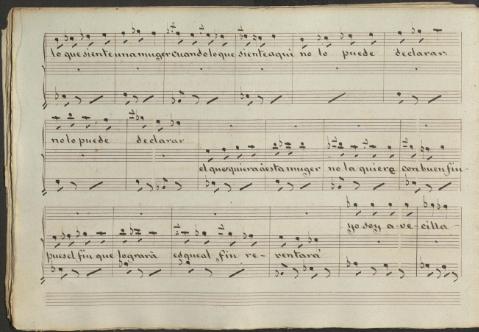 lo que siente una muger cuando lo que siente aqui no lo puede declarar
no lo puede declarar
el que quiera à esta muger no la quiere con buen fin
yo soy a-ve-cilla
pues el fin que lograrà es que al fin re-ventarà